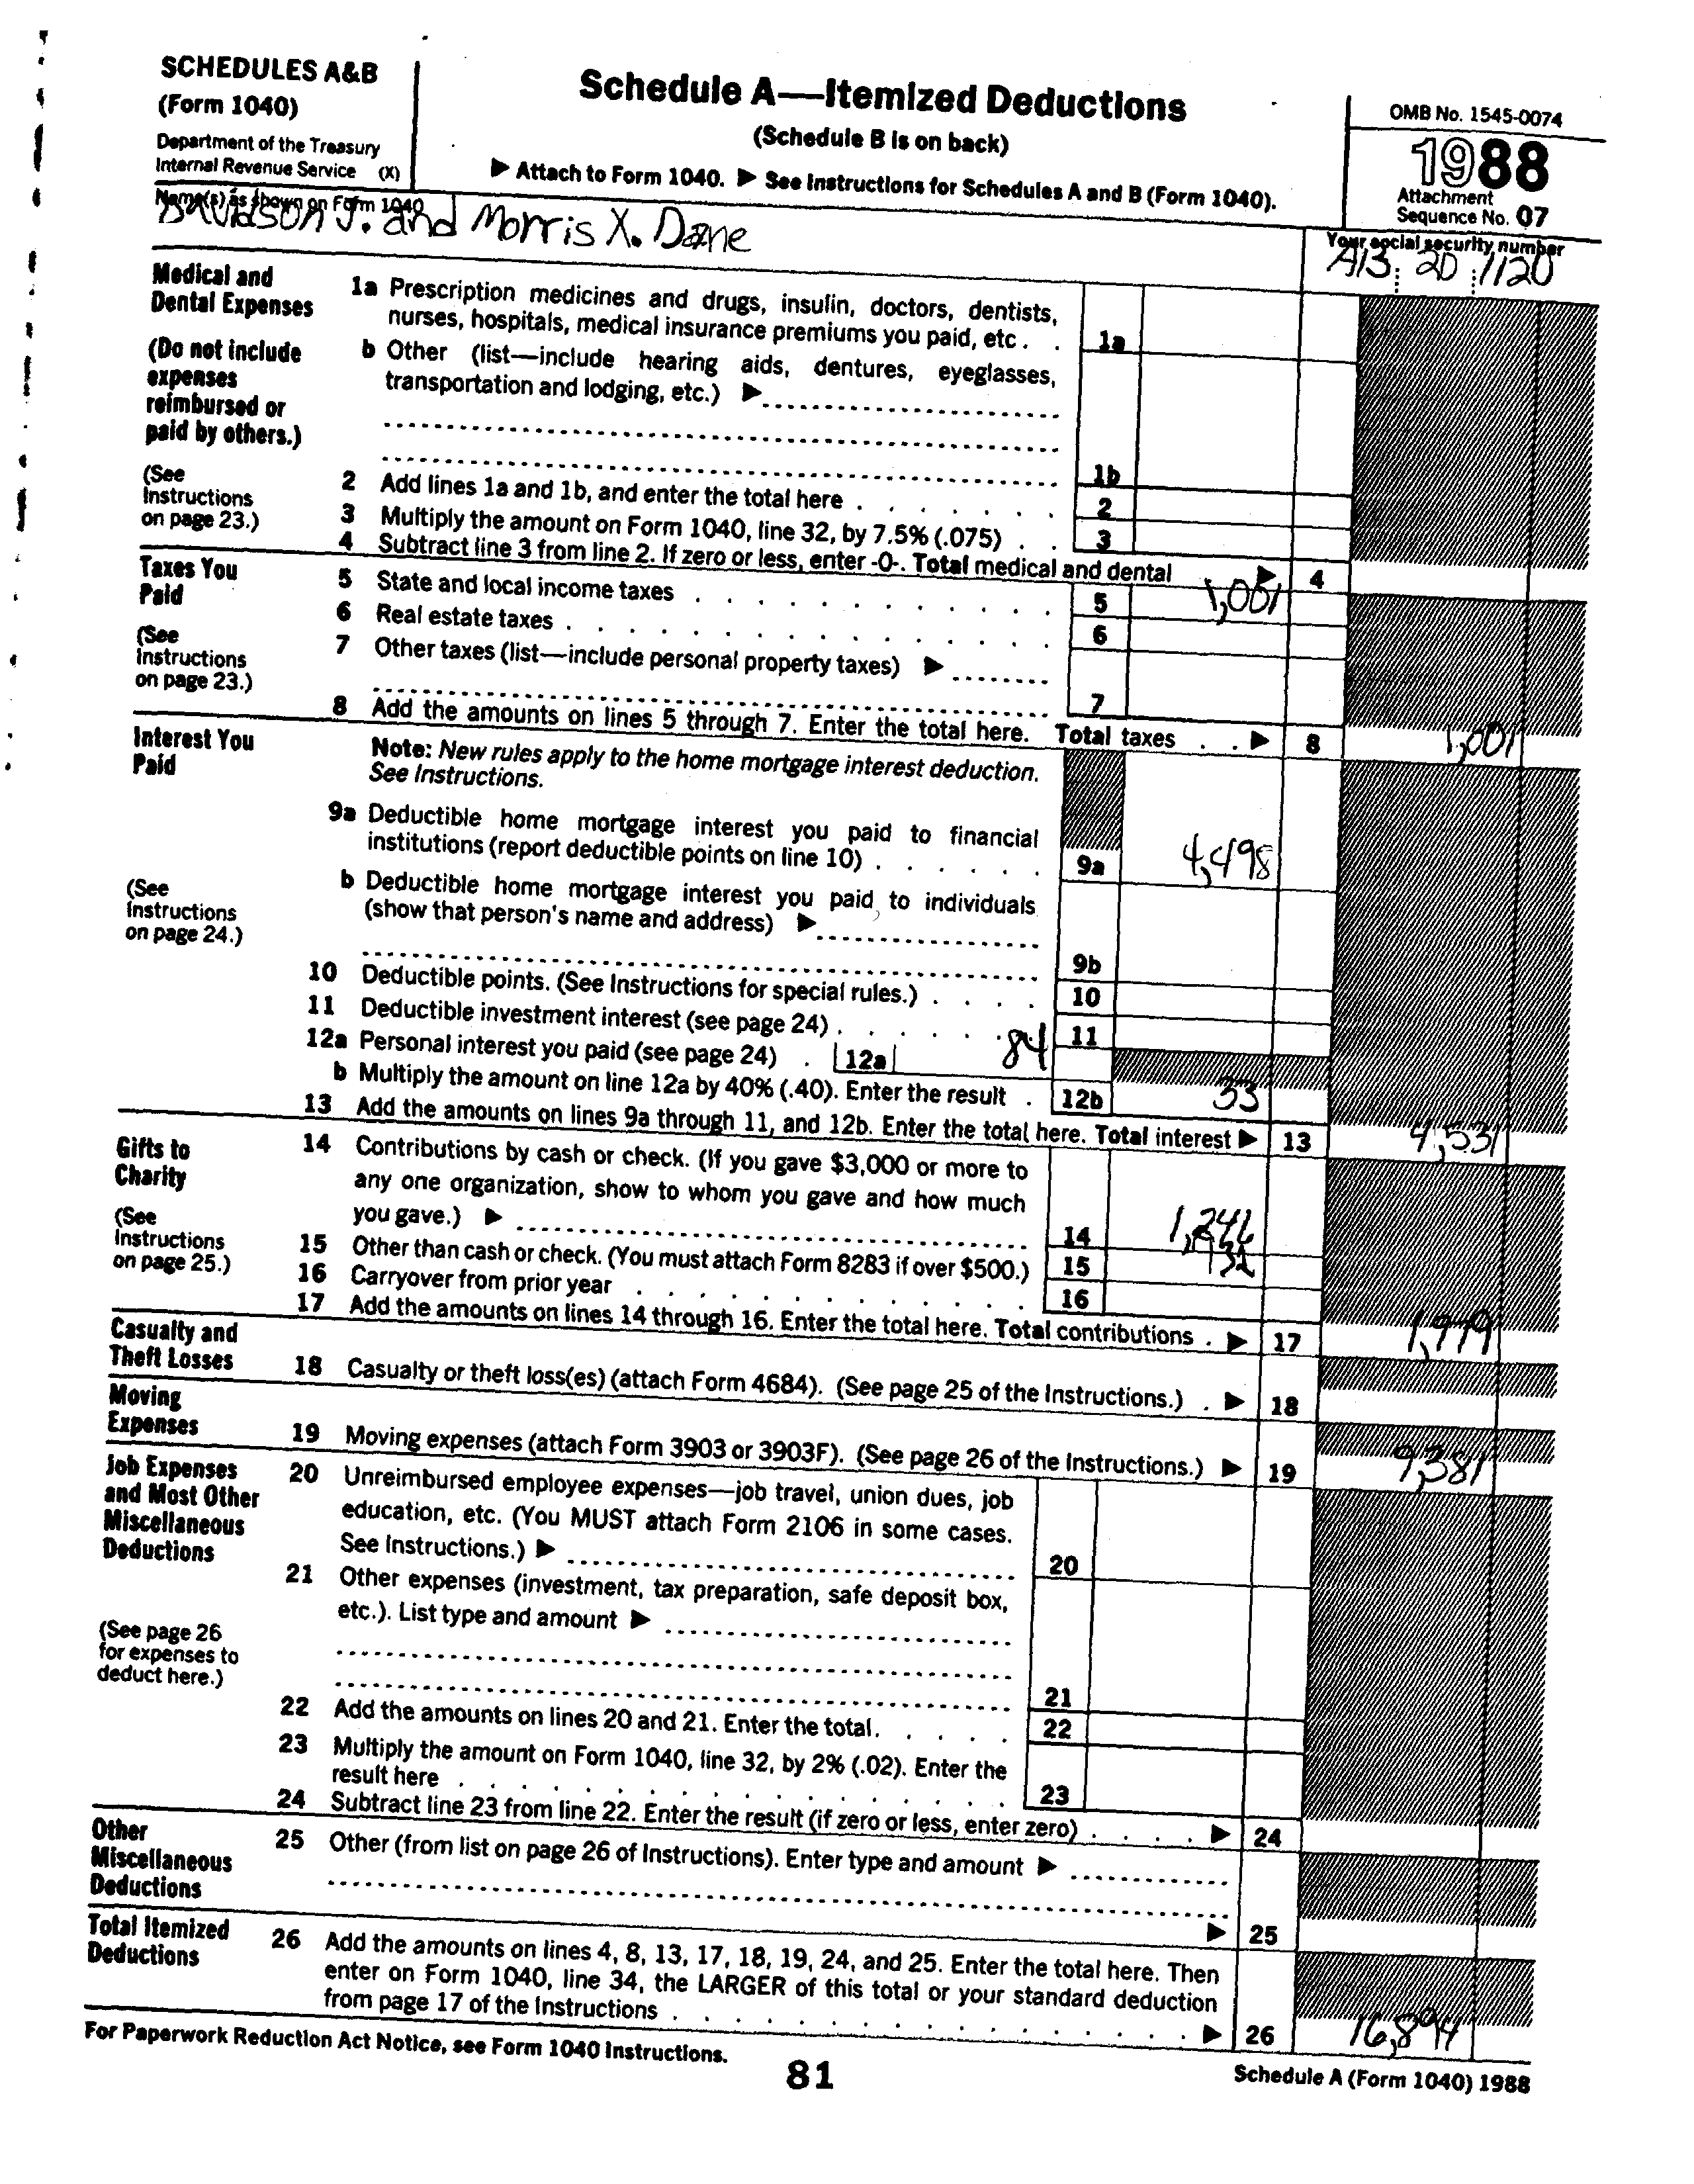 SCHEDULES A&B
(Form 1040)
Department of the Treasury
Internal Revenue Service (X)
Schedule A—Itemized Deductions
(Schedule B is on back)
▶ Attach to Form 1040. ▶ See Instructions for Schedules A and B (Form 1040).
OMB No. 1545-0074
1988
Attachment
Sequence No. 07
Name(s) as shown on Form 1040
Davidson J. and Morris X. Dane
Your social security number
A13 20 1120
Medical and
Dental Expenses
(Do not include
expenses
reimbursed or
paid by others.)
(See
Instructions
on page 23.)
1a Prescription medicines and drugs, insulin, doctors, dentists,
nurses, hospitals, medical insurance premiums you paid, etc . . 1a
b Other (list—include hearing aids, dentures, eyeglasses,
transportation and lodging, etc.) ▶
1b
2 Add lines 1a and 1b, and enter the total here . . . . . . . 2
3 Multiply the amount on Form 1040, line 32, by 7.5% (.075) . . 3
4 Subtract line 3 from line 2. If zero or less, enter -0-. Total medical and dental ▶ 4
Taxes You
Paid
(See
Instructions
on page 23.)
5 State and local income taxes . . . . . . . . . . . . 5 1,001
6 Real estate taxes . . . . . . . . . . . . . . . . 6
7 Other taxes (list—include personal property taxes) ▶
7
8 Add the amounts on lines 5 through 7. Enter the total here. Total taxes . . ▶ 8 1,001
Interest You
Paid
(See
Instructions
on page 24.)
Note: New rules apply to the home mortgage interest deduction.
See Instructions.
9a Deductible home mortgage interest you paid to financial
institutions (report deductible points on line 10) . . . . . . 9a 4,498
b Deductible home mortgage interest you paid to individuals
(show that person's name and address) ▶
9b
10 Deductible points. (See Instructions for special rules.) . . . . 10
11 Deductible investment interest (see page 24) . . . . . . . 11
12a Personal interest you paid (see page 24) . 12a 84
b Multiply the amount on line 12a by 40% (.40). Enter the result . 12b 33
13 Add the amounts on lines 9a through 11, and 12b. Enter the total here. Total interest ▶ 13 4,531
Gifts to
Charity
(See
Instructions
on page 25.)
14 Contributions by cash or check. (If you gave $3,000 or more to
any one organization, show to whom you gave and how much
you gave.) ▶ 14 1,246
15 Other than cash or check. (You must attach Form 8283 if over $500.) 15
16 Carryover from prior year . . . . . . . . . . . . . 16
17 Add the amounts on lines 14 through 16. Enter the total here. Total contributions . ▶ 17
Casualty and
Theft Losses
18 Casualty or theft loss(es) (attach Form 4684). (See page 25 of the Instructions.) . ▶ 18
Moving
Expenses
19 Moving expenses (attach Form 3903 or 3903F). (See page 26 of the Instructions.) ▶ 19 9,381
Job Expenses
and Most Other
Miscellaneous
Deductions
(See page 26
for expenses to
deduct here.)
20 Unreimbursed employee expenses—job travel, union dues, job
education, etc. (You MUST attach Form 2106 in some cases.
See Instructions.) ▶ 20
21 Other expenses (investment, tax preparation, safe deposit box,
etc.). List type and amount ▶
21
22 Add the amounts on lines 20 and 21. Enter the total. . . . . 22
23 Multiply the amount on Form 1040, line 32, by 2% (.02). Enter the
result here . . . . . . . . . . . . . . . . . . 23
24 Subtract line 23 from line 22. Enter the result (if zero or less, enter zero) . . . . ▶ 24
Other
Miscellaneous
Deductions
25 Other (from list on page 26 of Instructions). Enter type and amount ▶
▶ 25
Total Itemized
Deductions
26 Add the amounts on lines 4, 8, 13, 17, 18, 19, 24, and 25. Enter the total here. Then
enter on Form 1040, line 34, the LARGER of this total or your standard deduction
from page 17 of the Instructions . . . . . . . . . . . . . . . . . . ▶ 26 16,894
For Paperwork Reduction Act Notice, see Form 1040 Instructions.
81
Schedule A (Form 1040) 1988